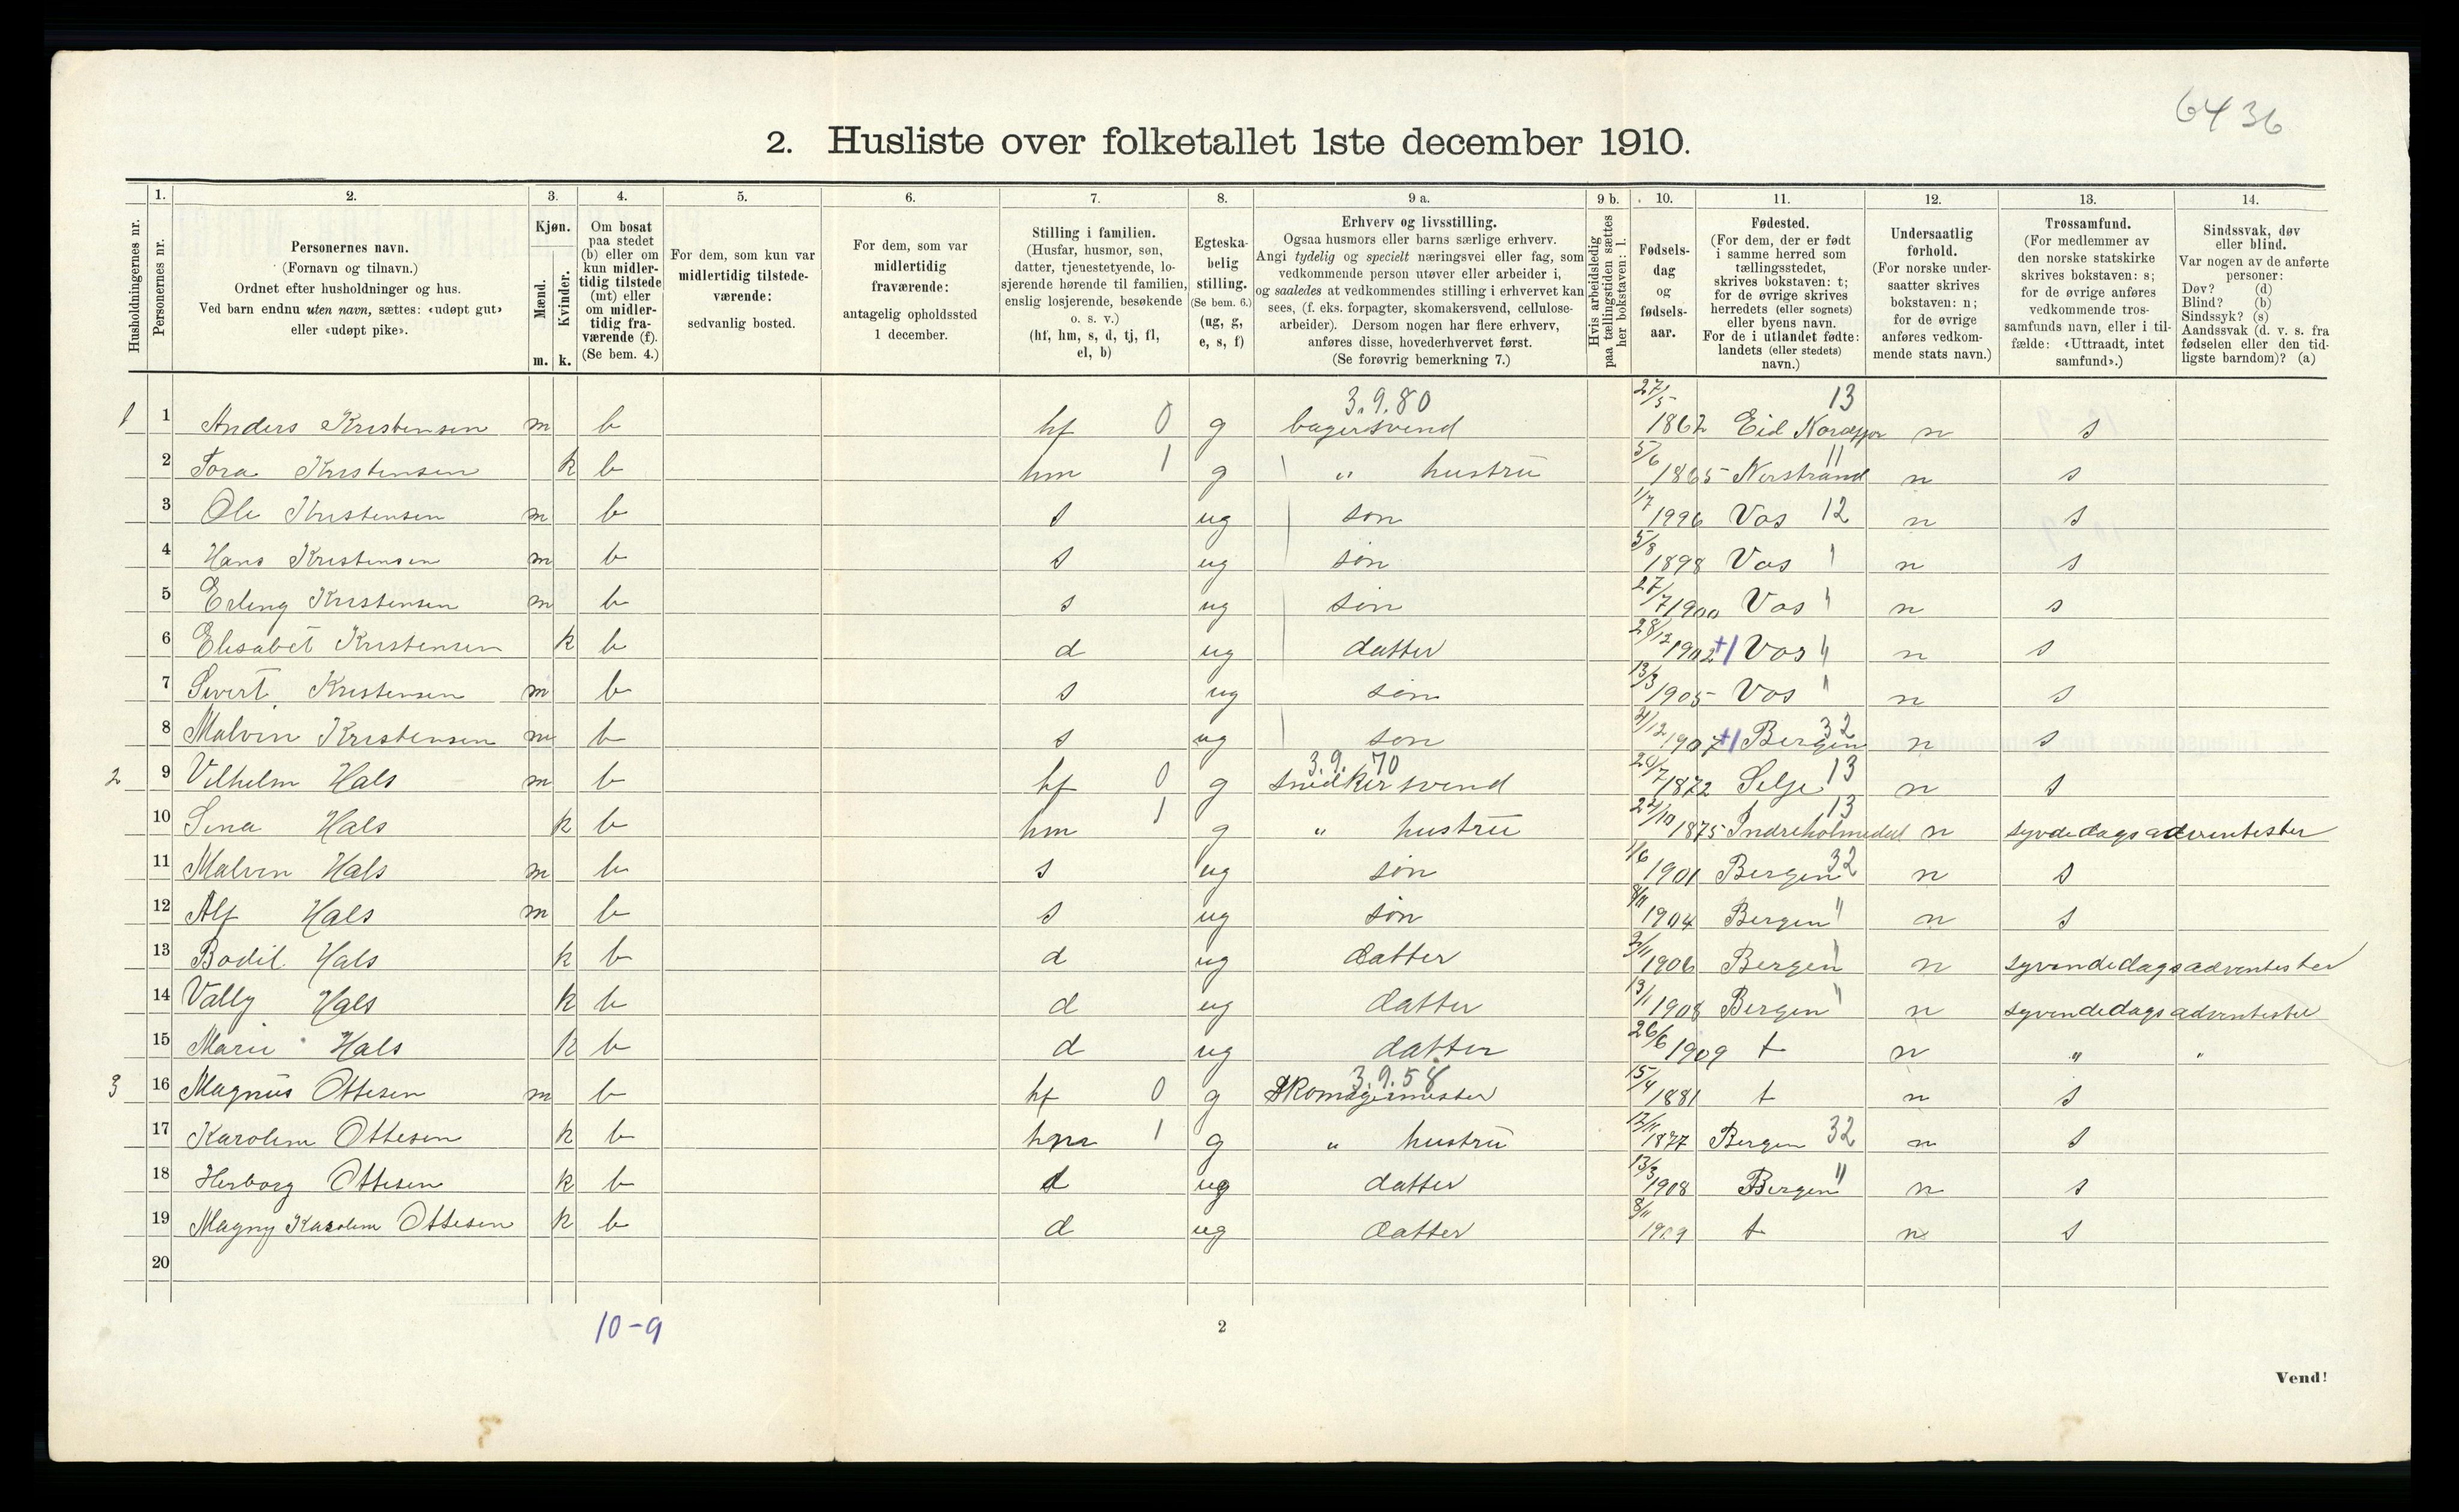 6436
2. Husliste over folketallet 1ste december 1910.
Husholdningernes nr.
1. Personernes nr.
2. Personernes navn. (Fornavn og tilnavn.) Ordnet efter husholdninger og hus. Ved barn endnu uten navn, sættes: «udøpt gut» eller «udøpt pike».
3. Kjøn. Mænd. m. Kvinder. k.
4. Om bosat paa stedet (b) eller om kun midlertidig tilstede (mt) eller om midlertidig fraværende (f). (Se bem. 4.)
5. For dem, som kun var midlertidig tilstedeværende: sedvanlig bosted.
6. For dem, som var midlertidig fraværende: antagelig opholdssted 1 december.
7. Stilling i familien. (Husfar, husmor, søn, datter, tjenestetyende, losjerende hørende til familien, enslig losjerende, besøkende o. s. v.) (hf, hm, s, d, tj, fl, el, b)
8. Egteskabelig stilling. (Se bem. 6.) (ug, g, e, s, f)
9 a. Erhverv og livsstilling. Ogsaa husmors eller barns særlige erhverv. Angi tydelig og specielt næringsvei eller fag, som vedkommende person utøver eller arbeider i, og saaledes at vedkommendes stilling i erhvervet kan sees, (f. eks. forpagter, skomakersvend, cellulosearbeider). Dersom nogen har flere erhverv, anføres disse, hovederhvervet først. (Se forøvrig bemerkning 7.)
9 b. Hvis arbeidsledig paa tællingstiden sættes her bokstaven: l.
10. Fødselsdag og fødselsaar.
11. Fødested. (For dem, der er født i samme herred som tællingsstedet, skrives bokstaven: t; for de øvrige skrives herredets (eller sognets) eller byens navn. For de i utlandet fødte: landets (eller stedets) navn.)
12. Undersaatlig forhold. (For norske undersaatter skrives bokstaven: n; for de øvrige anføres vedkommende stats navn.)
13. Trossamfund. (For medlemmer av den norske statskirke skrives bokstaven: s; for de øvrige anføres vedkommende trossamfunds navn, eller i tilfælde: «Uttraadt, intet samfund».)
14. Sindssvak, døv eller blind. Var nogen av de anførte personer: Døv? (d) Blind? (b) Sindssyk? (s) Aandssvak (d. v. s. fra fødselen eller den tidligste barndom)? (a)
1 1 Anders Kristensen m b hf 0 g 3.9.80 bagersvend 27/5 1862 Eid 13 n s
2 Tora Kristensen k b hm 1 g " hustru 5/6 1865 Nerstrand 11 n s
3 Ole Kristensen m b s ug søn 1/7 1996 Vos 12 n s
4 Hans Kristensen m b s ug søn 5/8 1898 Vos " n s
5 Erling Kristensen m b s ug søn 27/7 1900 Vos " n s
6 Elisabet Kristensen k b d ug datter 28/12 1902 +1 Vos " n s
7 Sivert Kristensen m b s ug søn 13/3 1905 Vos " n s
8 Malvin Kristensen m b s ug søn 1907 +1 Bergen 32 n s
2 9 Vilhelm Hals m b hf 0 g 3.9.70 snedkersvend 1872 Selje 13 n s
10 Sina Hals k b hm 1 g " hustru 1875 Indreholmedal 13 n syvdedagsadventister
11 Malvin Hals m b s ug søn 1/6 1901 Bergen 32 n s
12 Alf Hals m b s ug søn 8/11 1904 Bergen " n s
13 Bodil Hals k b d ug datter 2/11 1906 Bergen " n syvendedagsadventister
14 Vally Hals k b d ug datter 13/11 1908 Bergen " n syvendedagsadventister
15 Marie Hals k b d ug datter 26/6 1909 t n " "
3 16 Magnus Ottesen m b hf 0 g 3.9.58 Skomagermester 15/4 1881 t n s
17 Karoline Ottesen k b hm 1 g " hustru 12/11 1877 Bergen 32 n s
18 Herborg Ottesen k b d ug datter 13/3 1908 Bergen " n s
19 Magny Karoline Ottesen k b d ug datter 8/11 1909 t n s
20
10-9
2
Vend!